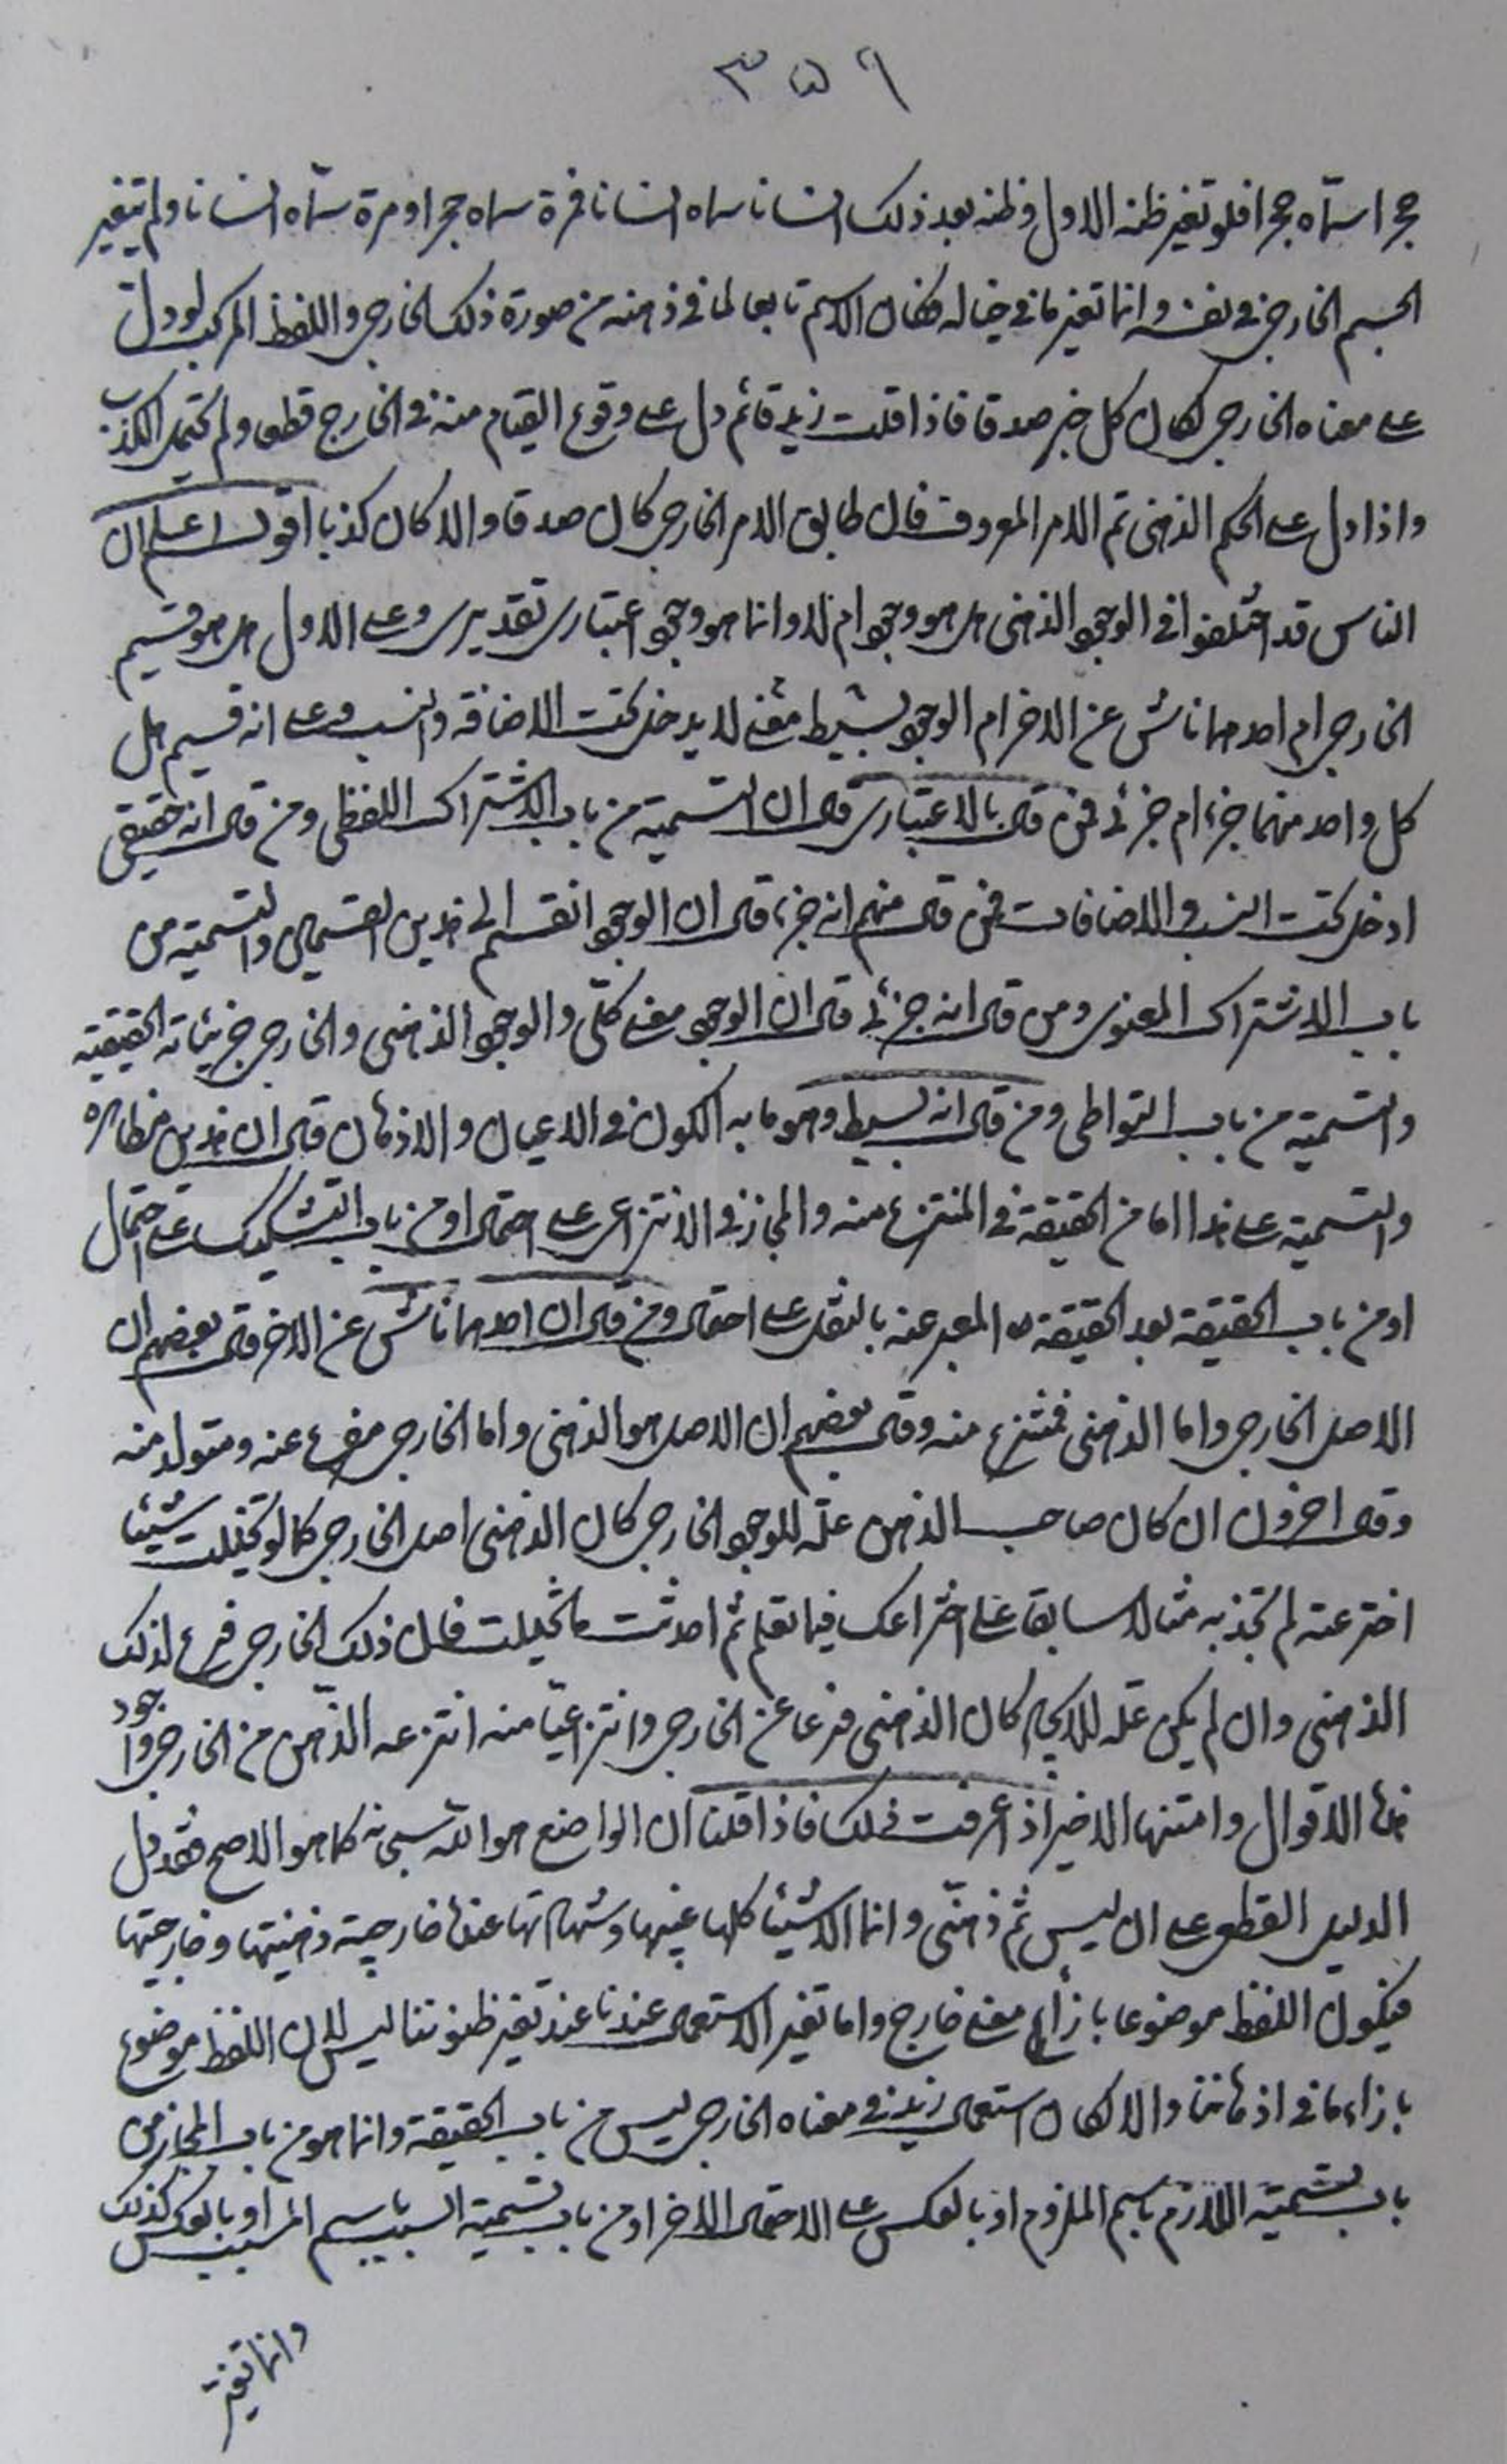 ٣٥٩
حجرا سمّاه حجرا فلو تغير ظنه الاول وظنه بعد ذلك انسانا سماه انسانا فمرة سماه حجرا ومرة سمّاه انسانا ولم يتغير
الجسم الخارجي في نفسه وانما تغير ما في خياله فكان الاسم تابعا لما في ذهنه من صورة ذلك الخارجي واللفظ المركب لو دل
على معناه الخارجي لكان كل خبر صدقا فاذا قلت زيد قائم دل على وقوع القيام منه في الخارج قطعا ولم يحتمل الكذب
واذا دل على الحكم الذهني تم الامر المعروف فان طابق الامر الخارجي كان صدقا والا كان كذبا اقول اعلم ان
الناس قد اختلفوا في الوجود الذهني هل هو وجود ام لا وانما هو وجود اعتباري تقديري وعلى الاول هل هو قسيم
الخارجي ام احدهما ناش عن الاخر ام الوجود بسيط معنى لا يدخل تحت الاضافة والنسب وعلى انه قسيم هل
كل واحد منهما جزء ام جزئي فمن قال بالاعتباري قال ان التسمية من باب الاشتراك اللفظي ومن قال انه حقيقي
ادخل تحت النسب والاضافات فمن قال منهم انه جزء قال ان الوجود انقسم الى هذين القسمين والتسمية من
باب الاشتراك المعنوي ومن قال انه جزئي قال ان الوجود معنى كلّي والوجود الذهني والخارجي جزيئاته الحقيقية
والتسمية من باب التواطي ومن قال انه بسيط وهو ما به الكون في الاعيان والاذهان قال ان هذين مظاهره
والتسمية على هذا اما من الحقيقة في المنتزع منه والمجاز في الانتزاعي على احتمال او من باب التشكيك على احتمال
او من باب الحقيقة بعد الحقيقة المعبر عنه بالنقل على احتمال ومن قال ان احدهما ناش عن الاخر قال بعضهم ان
الاصل الخارجي واما الذهني فمنتزع منه وقال بعضهم ان الاصل هو الذهني واما الخارجي مفرع عنه ومتولد منه
وقال اخرون ان كان صاحب الذهن علّة للوجود الخارجي كان الذهني اصل الخارجي كما لو تخيلت شيئا
اخترعته لم تجد به مثالا سابقا على اختراعك فيما تعلم ثم احدثت ما تخيلت فان ذلك الخارجي فرع لذلك
الذهني وان لم يكن علة للايجاد كان الذهني فرعا عن الخارجي وانتزاعيّا منه انتزعه الذهن من الخارجي واجود
هذه الاقوال وامتنها الاخير اذ اعرفت ذلك فاذا قلنا ان الواضع هو الله سبحانه كما هو الاصح فقد دل
الدليل القطعي على ان ليس ثم ذهنّي وانما الاشيئا كلها غيبها وشهادتها عنده خارجية ذهنيتها وخارجيتها
فيكون اللفظ موضوعا بازآء معنى خارج واما تغير الاستعمال عندنا عند تغير ظنوننا ليس لان اللفظ موضوع
بازاء ما في اذهاننا والا لكان استعمال زيد في معناه الخارجي ليس من باب الحقيقة وانما هو من باب المجاز من
باب تسمية اللازم باسم الملزوم او بالعكس على الاحتمال الاخر او من باب تسمية السبب باسم المسبب او بالعكس كذلك
وانما تغير